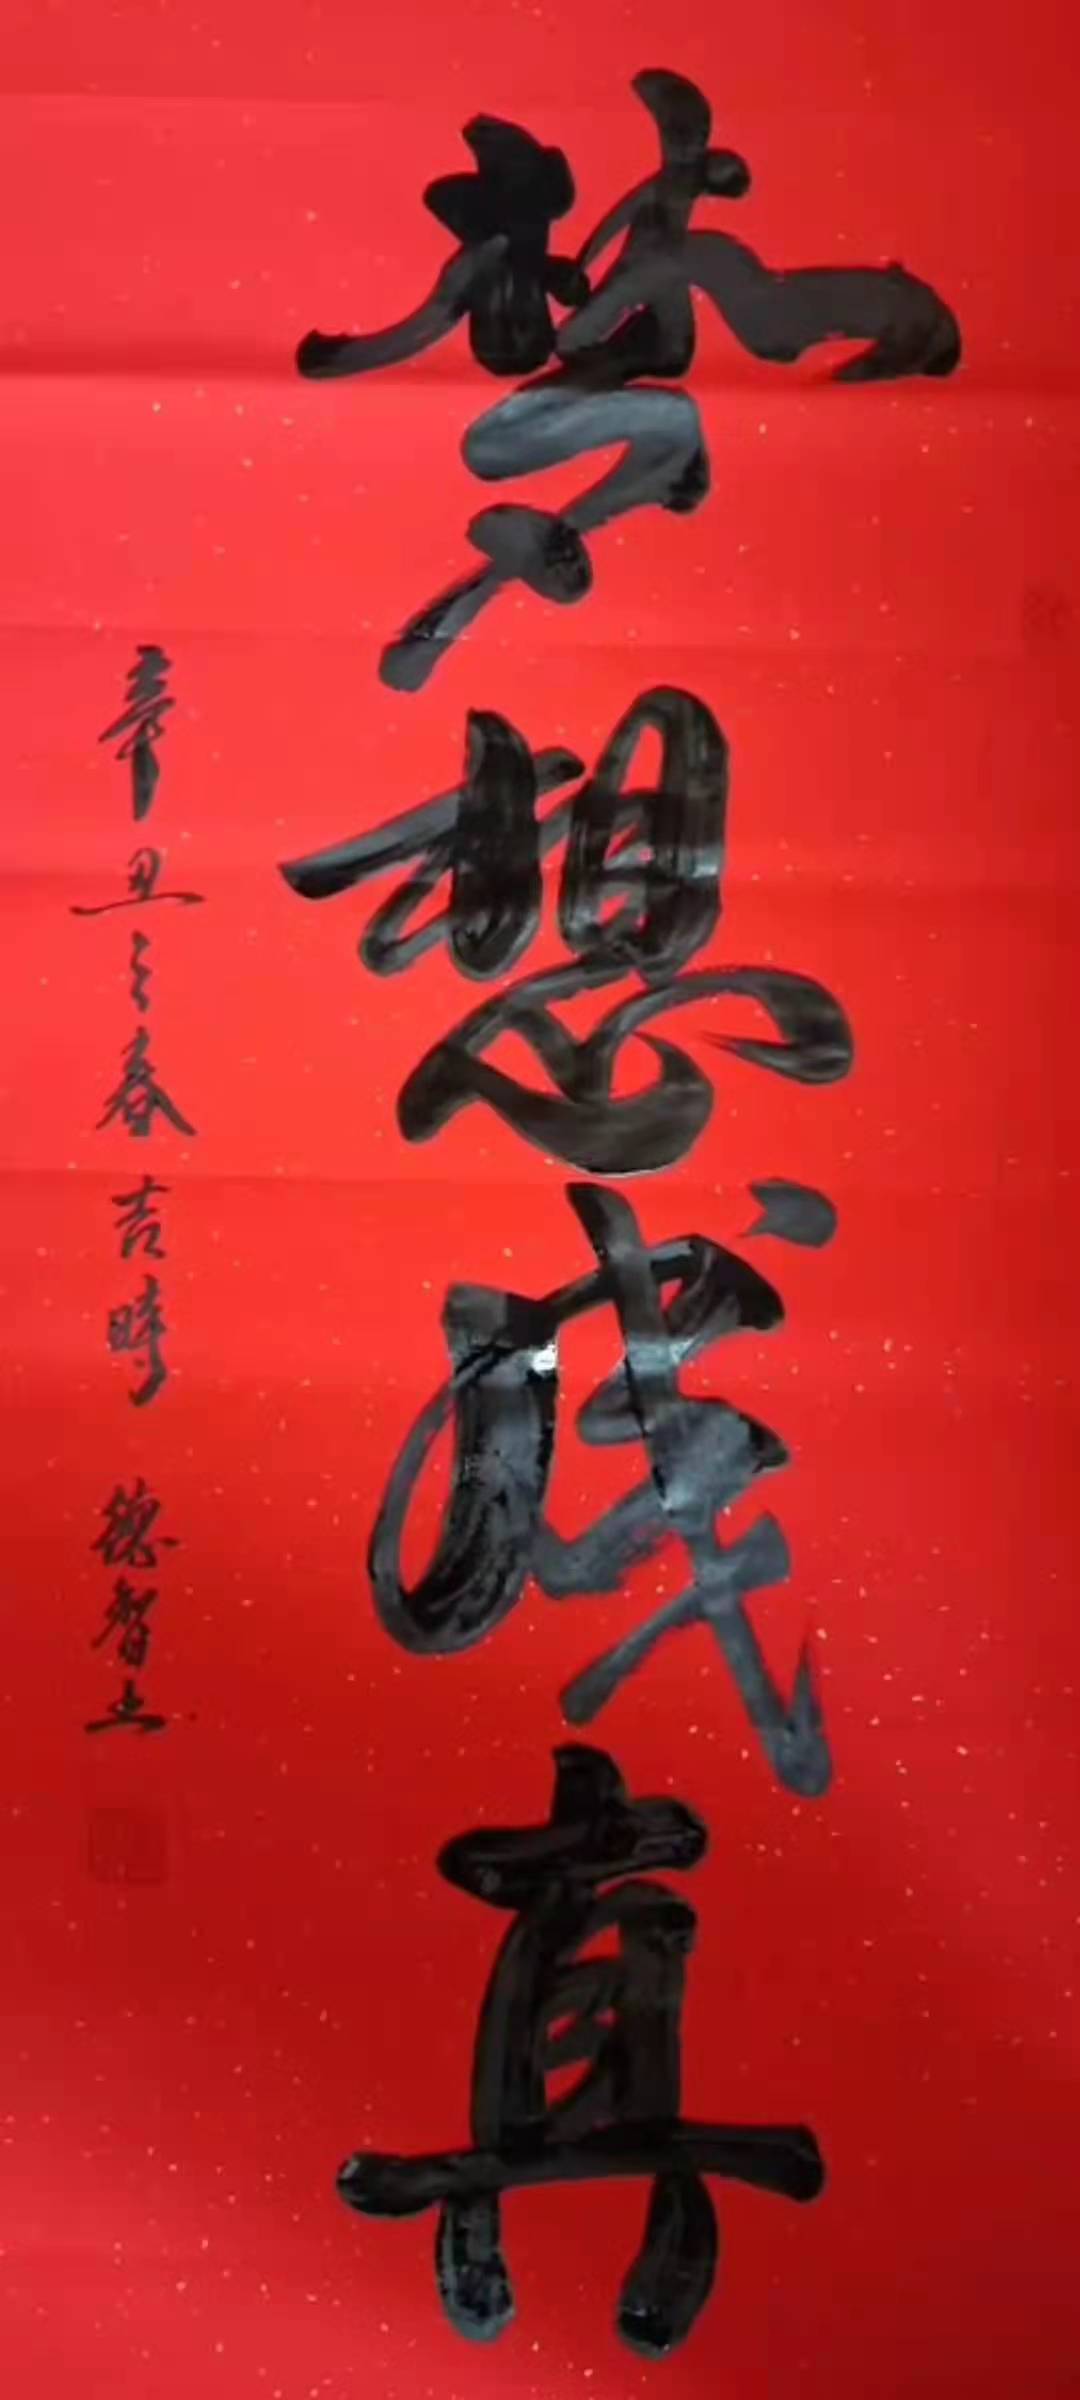 梦想成真
辛丑之春吉時 德智上